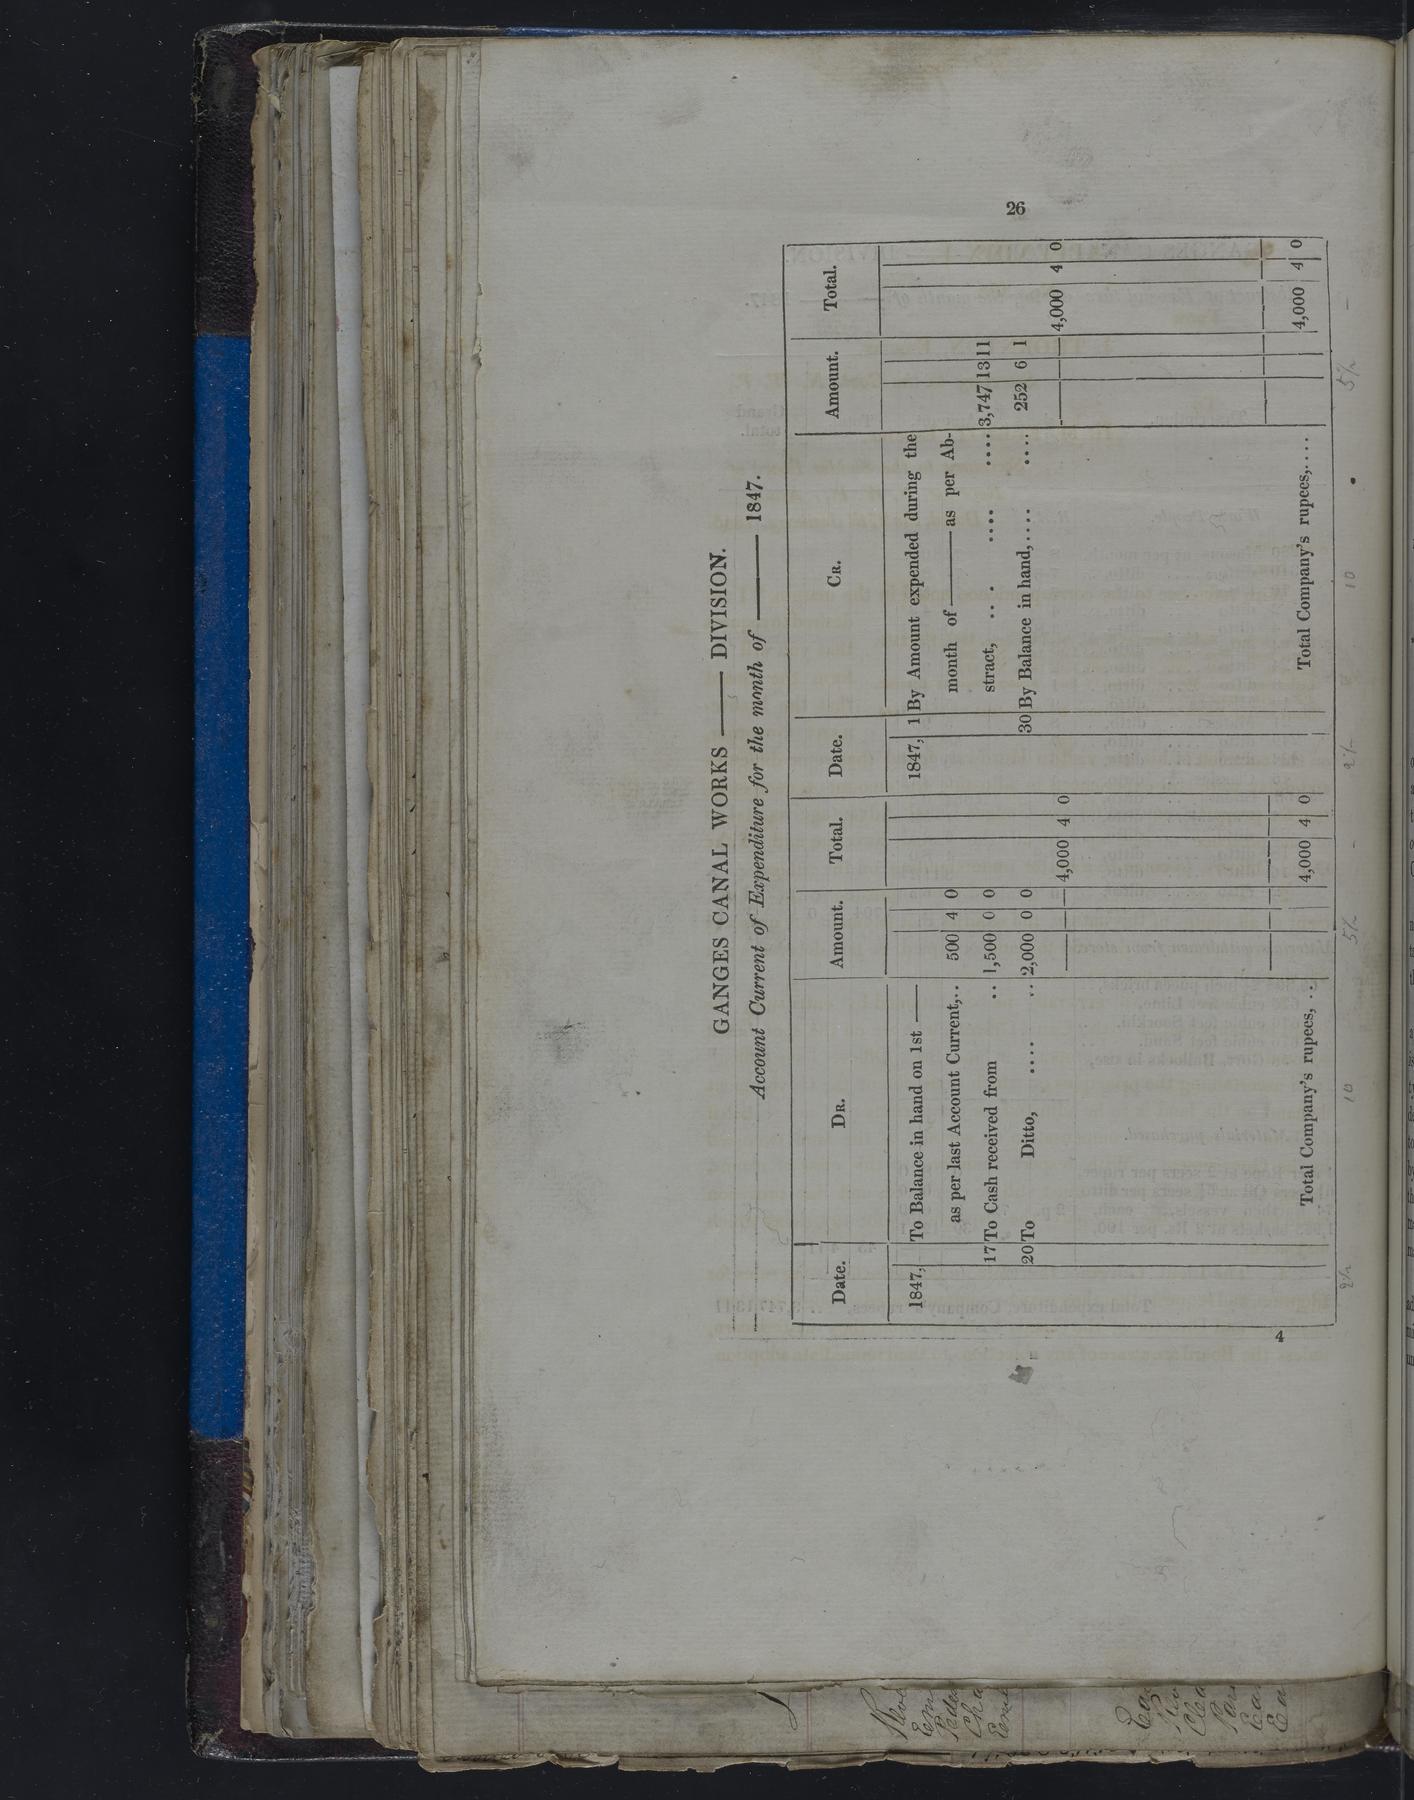 26
GANGES CANAL WORKS —— DIVISION.
Account Current of Expenditure for the month of ——— 1847.
Date. DR. Amount. Total. Date. CR. Amount. Total.
1847, To Balance in hand on 1st —— 1847, 1 By Amount expended during the
as per last Account Current,.. 500 4 0 month of ——— as per Ab-
17 To Cash received from .. 1,500 0 0 stract, .. . .... .... 3,747 13 11
20 To Ditto, .... .. 2,000 0 0 30 By Balance in hand,.... .... 252 6 1
4,000 4 0 4,000 4 0
Total Company's rupees, .. 4,000 4 0 Total Company's rupees,.... 4,000 4 0
4
2½ 10 5½ - 2½ 10 5½ -